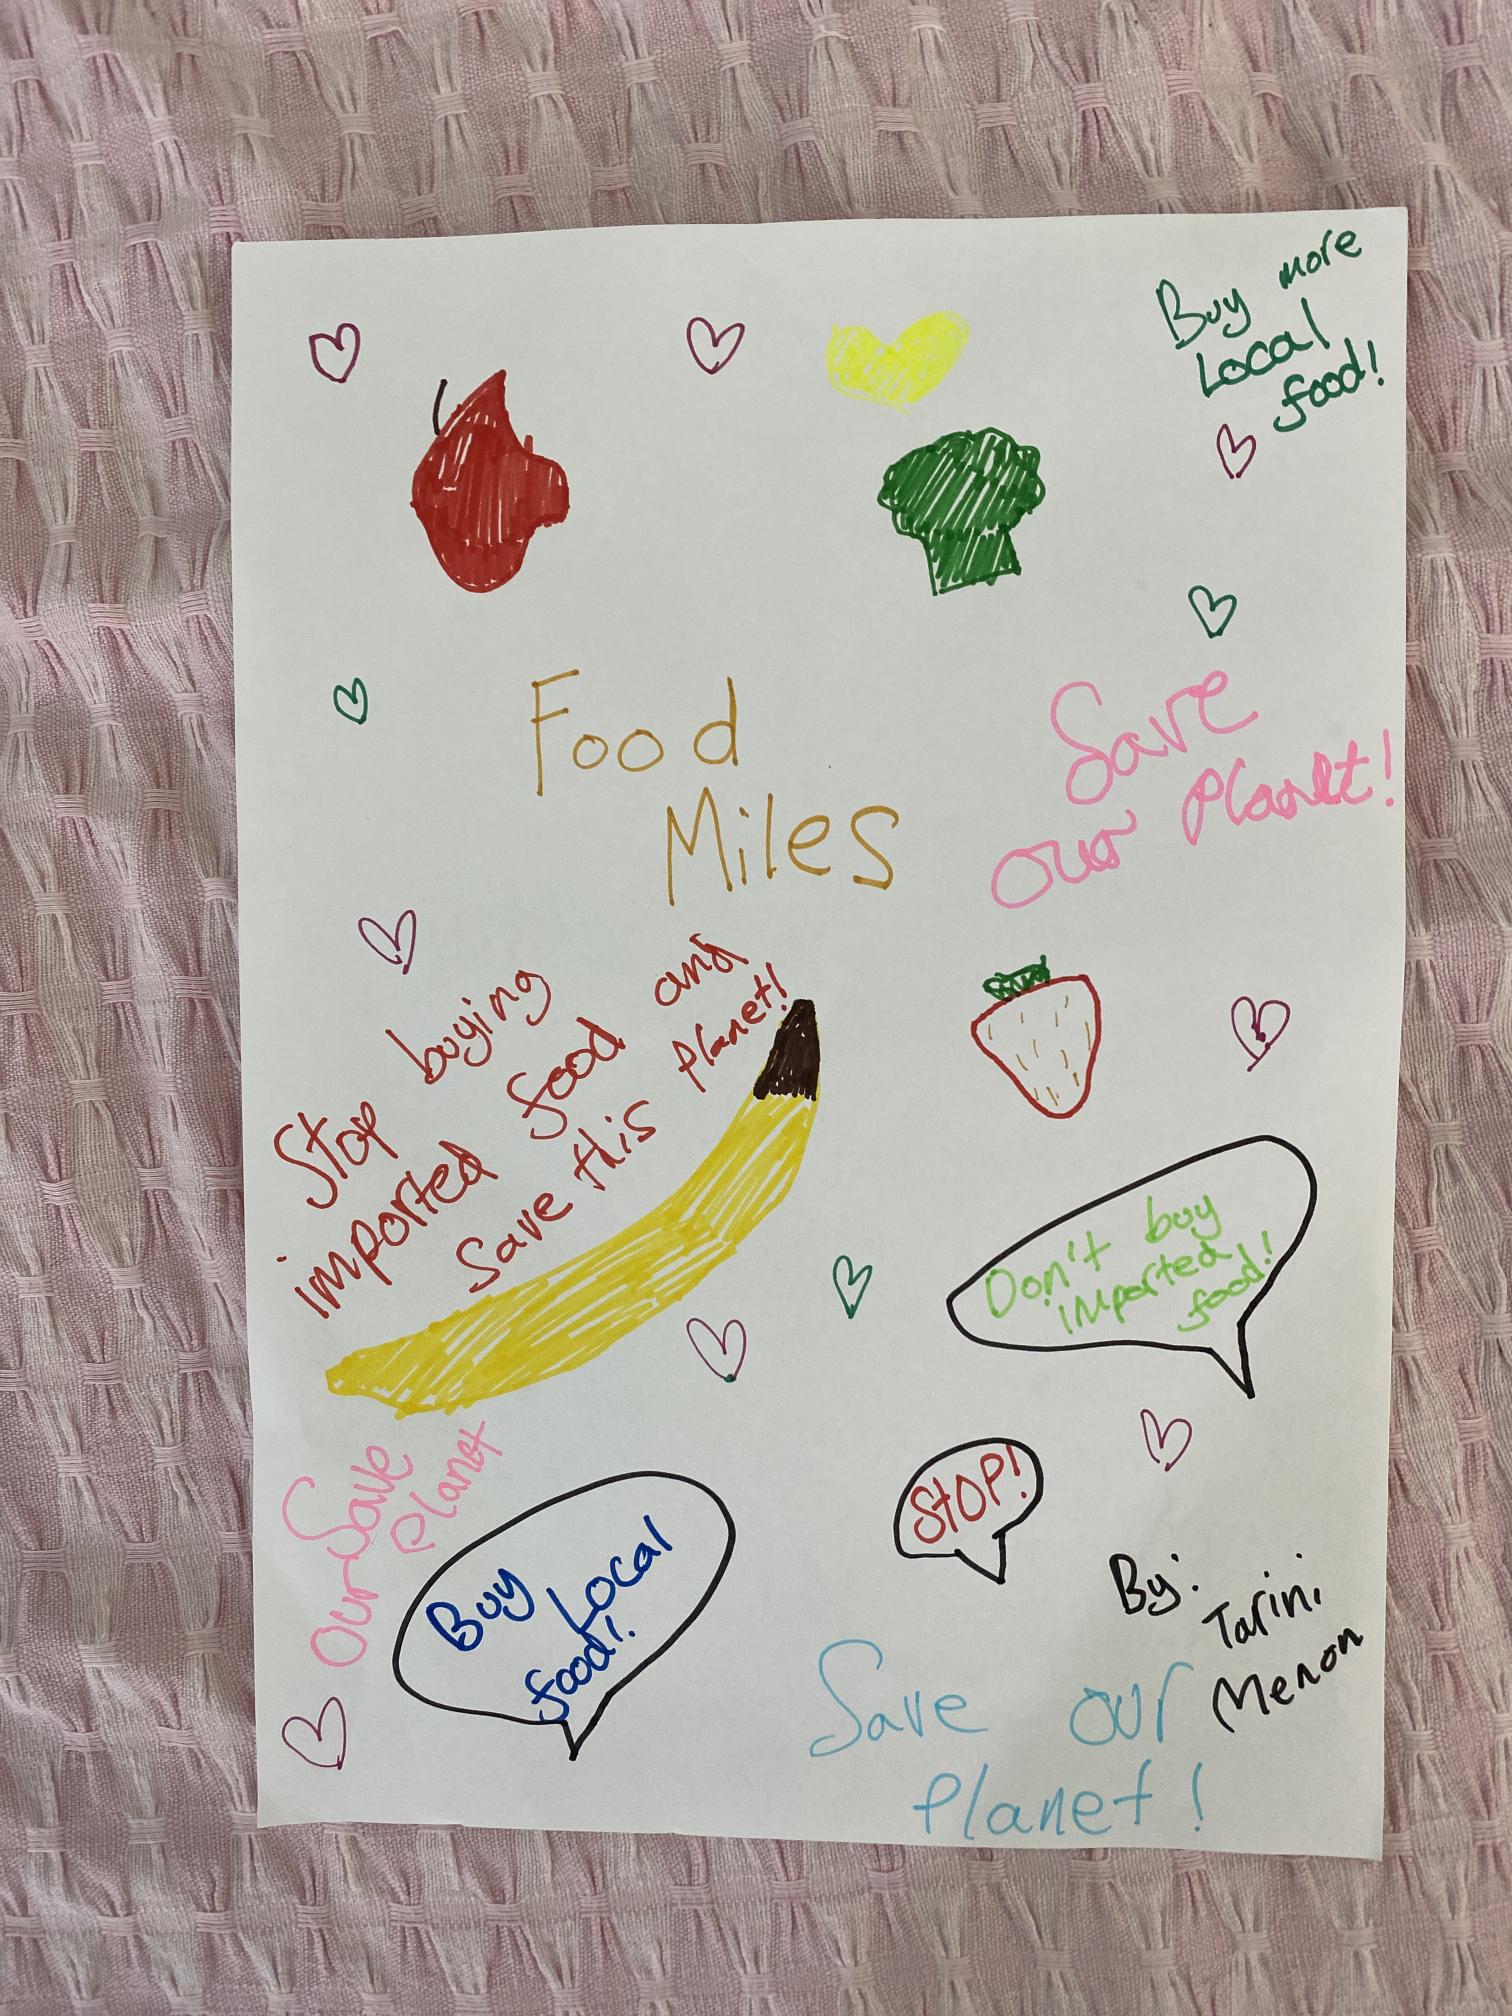 Buy more
Local
food!
Food
Miles
Save
our planet!
Stop buying
imported food and
Save this planet!
Don't buy
imported
food!
Save
Our planet
STOP!
Buy
Local
food!
By:
Tarini
Menon
Save our
planet!